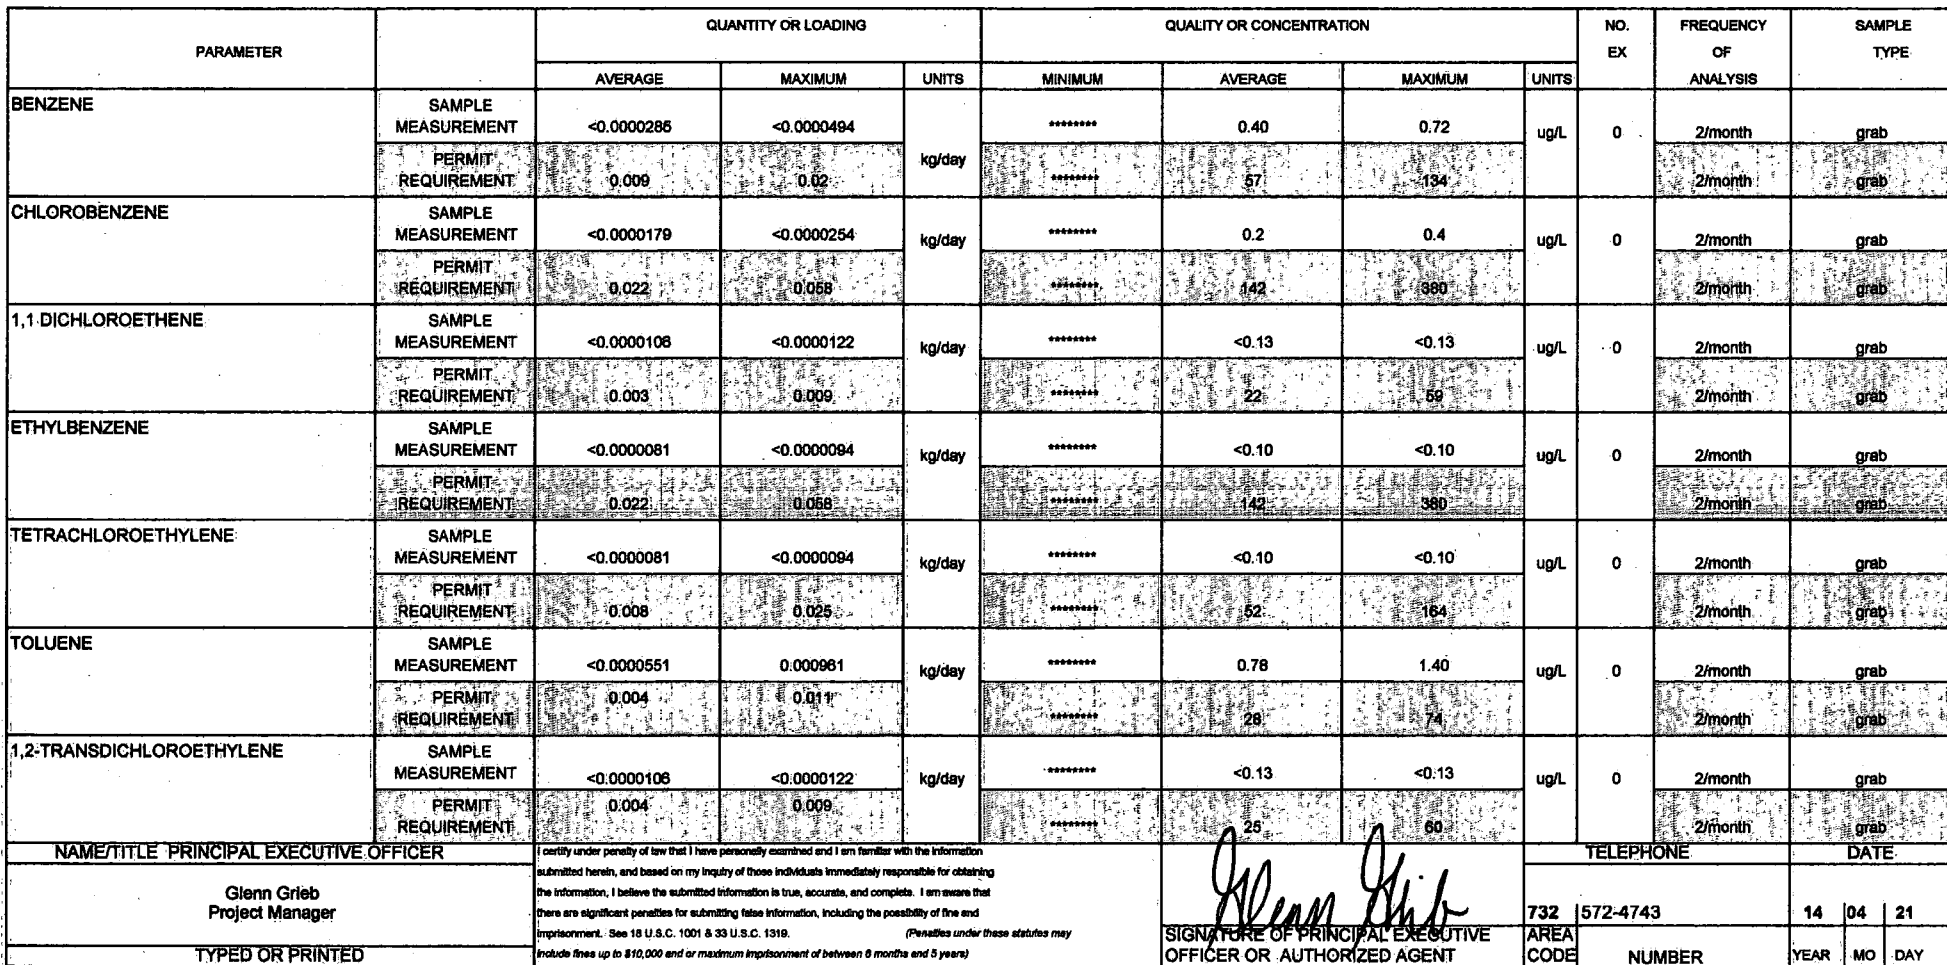 PARAMETER QUANTITY OR LOADING QUALITY OR CONCENTRATION NO. EX FREQUENCY OF ANALYSIS SAMPLE TYPE
AVERAGE MAXIMUM UNITS MINIMUM AVERAGE MAXIMUM UNITS
BENZENE SAMPLE MEASUREMENT <0.0000286 <0.0000494 kg/day ******** 0.40 0.72 ug/L 0 2/month grab
PERMIT REQUIREMENT 0.009 0.02 ******** 57 134 2/month grab
CHLOROBENZENE SAMPLE MEASUREMENT <0.0000179 <0.0000254 kg/day ******** 0.2 0.4 ug/L 0 2/month grab
PERMIT REQUIREMENT 0.022 0.058 ******** 142 380 2/month grab
1,1 DICHLOROETHENE SAMPLE MEASUREMENT <0.0000106 <0.0000122 kg/day ******** <0.13 <0.13 ug/L 0 2/month grab
PERMIT REQUIREMENT 0.003 0.009 ******** 22 59 2/month grab
ETHYLBENZENE SAMPLE MEASUREMENT <0.0000081 <0.0000094 kg/day ******** <0.10 <0.10 ug/L 0 2/month grab
PERMIT REQUIREMENT 0.022 0.058 ******** 142 380 2/month grab
TETRACHLOROETHYLENE SAMPLE MEASUREMENT <0.0000081 <0.0000094 kg/day ******** <0.10 <0.10 ug/L 0 2/month grab
PERMIT REQUIREMENT 0.008 0.025 ******** 52 164 2/month grab
TOLUENE SAMPLE MEASUREMENT <0.0000551 0.000961 kg/day ******** 0.78 1.40 ug/L 0 2/month grab
PERMIT REQUIREMENT 0.004 0.011 ******** 28 74 2/month grab
1,2-TRANSDICHLOROETHYLENE SAMPLE MEASUREMENT <0.0000106 <0.0000122 kg/day ******** <0.13 <0.13 ug/L 0 2/month grab
PERMIT REQUIREMENT 0.004 0.009 ******** 25 60 2/month grab
NAME/TITLE PRINCIPAL EXECUTIVE OFFICER
Glenn Grieb
Project Manager
TYPED OR PRINTED
I certify under penalty of law that I have personally examined and I am familiar with the information
submitted herein, and based on my inquiry of those individuals immediately responsible for obtaining
the information, I believe the submitted information is true, accurate, and complete. I am aware that
there are significant penalties for submitting false information, including the possibility of fine and
imprisonment. See 18 U.S.C. 1001 & 33 U.S.C. 1319. (Penalties under these statutes may
include fines up to $10,000 and or maximum imprisonment of between 6 months and 5 years)
Glenn Grieb
SIGNATURE OF PRINCIPAL EXECUTIVE
OFFICER OR AUTHORIZED AGENT
TELEPHONE DATE
732 572-4743 14 04 21
AREA CODE NUMBER YEAR MO DAY